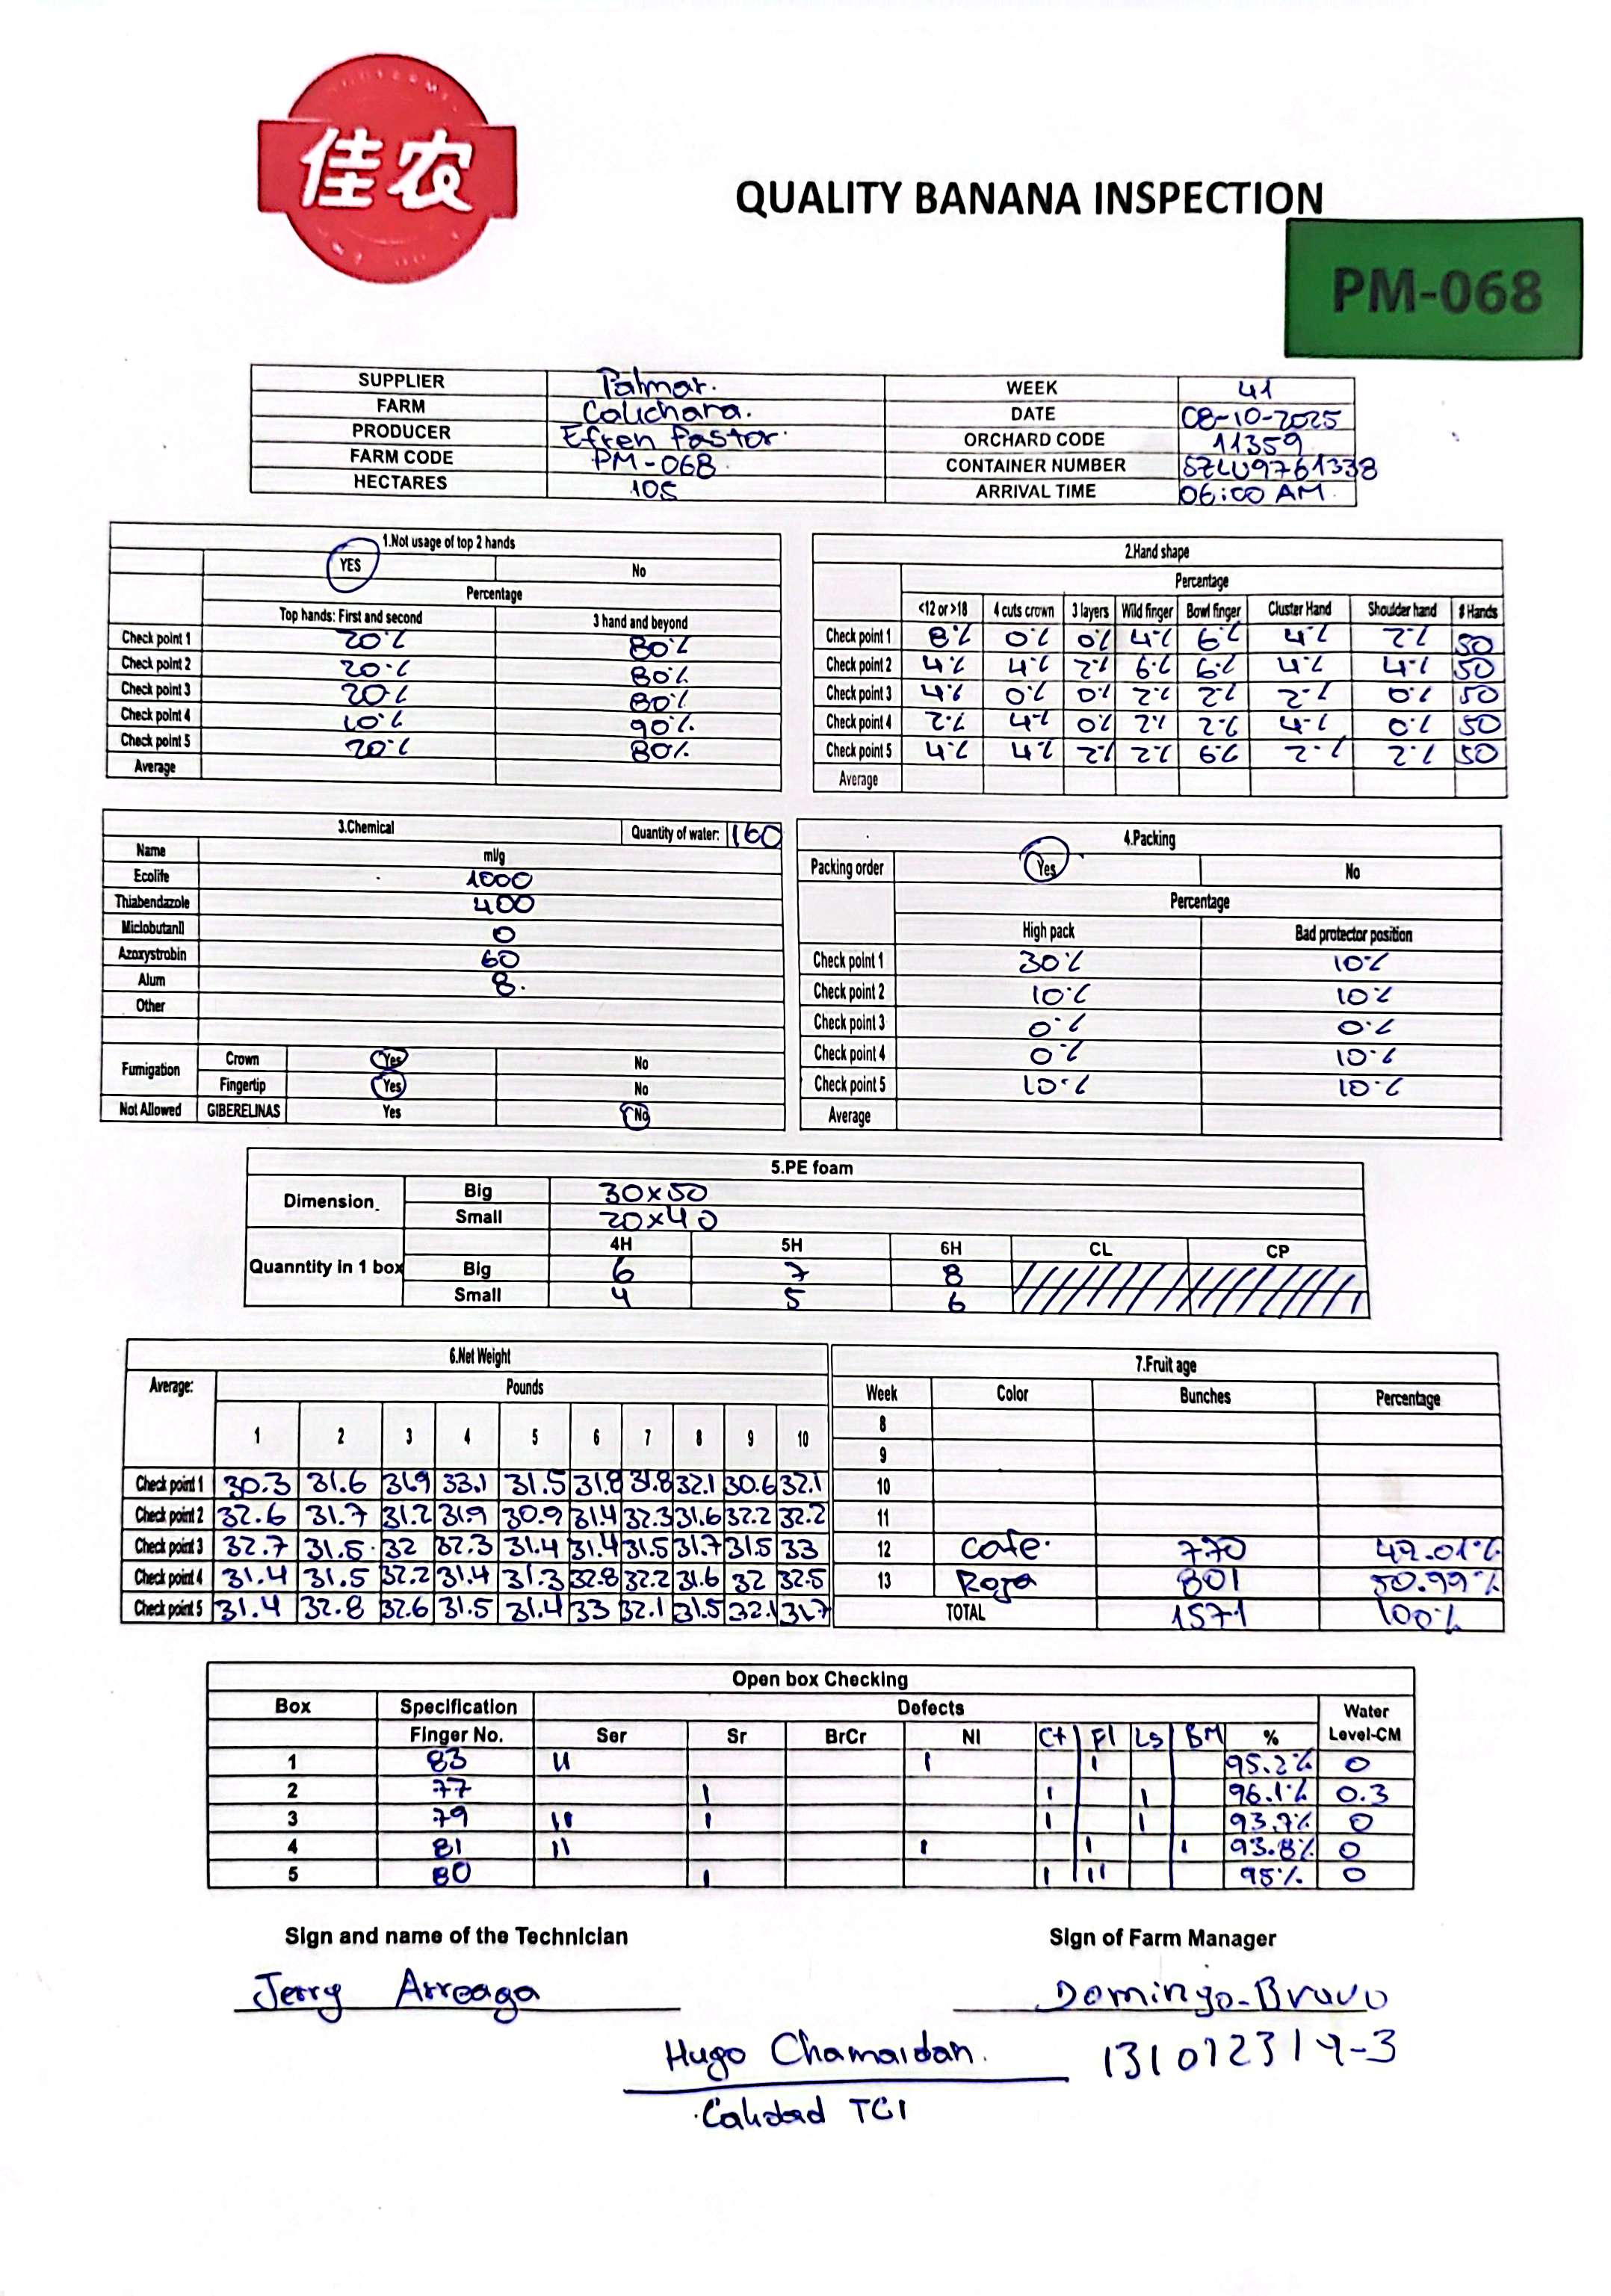 佳农
QUALITY BANANA INSPECTION
PM-068
SUPPLIER Palmar. WEEK 41
FARM Calichana. DATE 08-10-2025
PRODUCER Efren Pastor. ORCHARD CODE 11359
FARM CODE PM-068 CONTAINER NUMBER SZLU9761338
HECTARES 105 ARRIVAL TIME 06:00 AM.
1.Not usage of top 2 hands
YES No
Percentage
Top hands: First and second 3 hand and beyond
Check point 1 20% 80%
Check point 2 20% 80%
Check point 3 20% 80%
Check point 4 10% 90%
Check point 5 20% 80%
Average
2.Hand shape
Percentage
<12 or >18 4 cuts crown 3 layers Wild finger Bowl finger Cluster Hand Shoulder hand # Hands
Check point 1 8% 0% 0% 4% 6% 4% 2% 50
Check point 2 4% 4% 2% 6% 6% 4% 4% 50
Check point 3 4% 0% 0% 2% 2% 2% 0% 50
Check point 4 2% 4% 0% 2% 2% 4% 0% 50
Check point 5 4% 4% 2% 2% 6% 2% 2% 50
Average
3.Chemical Quantity of water: 160
Name ml/g
Ecolife 1000
Thiabendazole 400
Miclobutanil 0
Azoxystrobin 60
Alum 8.
Other
Fumigation Crown Yes No
Fingertip Yes No
Not Allowed GIBERELINAS Yes No
4.Packing
Packing order Yes No
Percentage
High pack Bad protector position
Check point 1 30% 10%
Check point 2 10% 10%
Check point 3 0% 0%
Check point 4 0% 10%
Check point 5 10% 10%
Average
5.PE foam
Dimension. Big 30x50
Small 20x40
4H 5H 6H CL CP
Quanntity in 1 box Big 6 7 8
Small 4 5 6
6.Net Weight
Average: Pounds
1 2 3 4 5 6 7 8 9 10
Check point 1 30.3 31.6 31.9 33.1 31.5 31.8 31.8 32.1 30.6 32.1
Check point 2 32.6 31.7 31.2 31.9 30.9 31.4 32.3 31.6 32.2 32.2
Check point 3 32.7 31.5 32 32.3 31.4 31.4 31.5 31.7 31.5 33
Check point 4 31.4 31.5 32.2 31.4 31.3 32.8 32.2 31.6 32 32.5
Check point 5 31.4 32.8 32.6 31.5 31.4 33 32.1 31.5 32.1 31.7
7.Fruit age
Week Color Bunches Percentage
8
9
10
11
12 Cafe. 770 49.01%
13 Roja 801 50.99%
TOTAL 1571 100%
Open box Checking
Box Specification Defects Water
Finger No. Ser Sr BrCr NI Ct Fl Ls BM % Level-CM
1 83 II I I 95.2% 0
2 77 I I I 96.1% 0.3
3 79 II I I I 93.7% 0
4 81 II I I I 93.8% 0
5 80 I I II 95% 0
Sign and name of the Technician Sign of Farm Manager
Jerry Arreaga Domingo Bravo
Hugo Chamaidan. 131012314-3
Calidad TCI